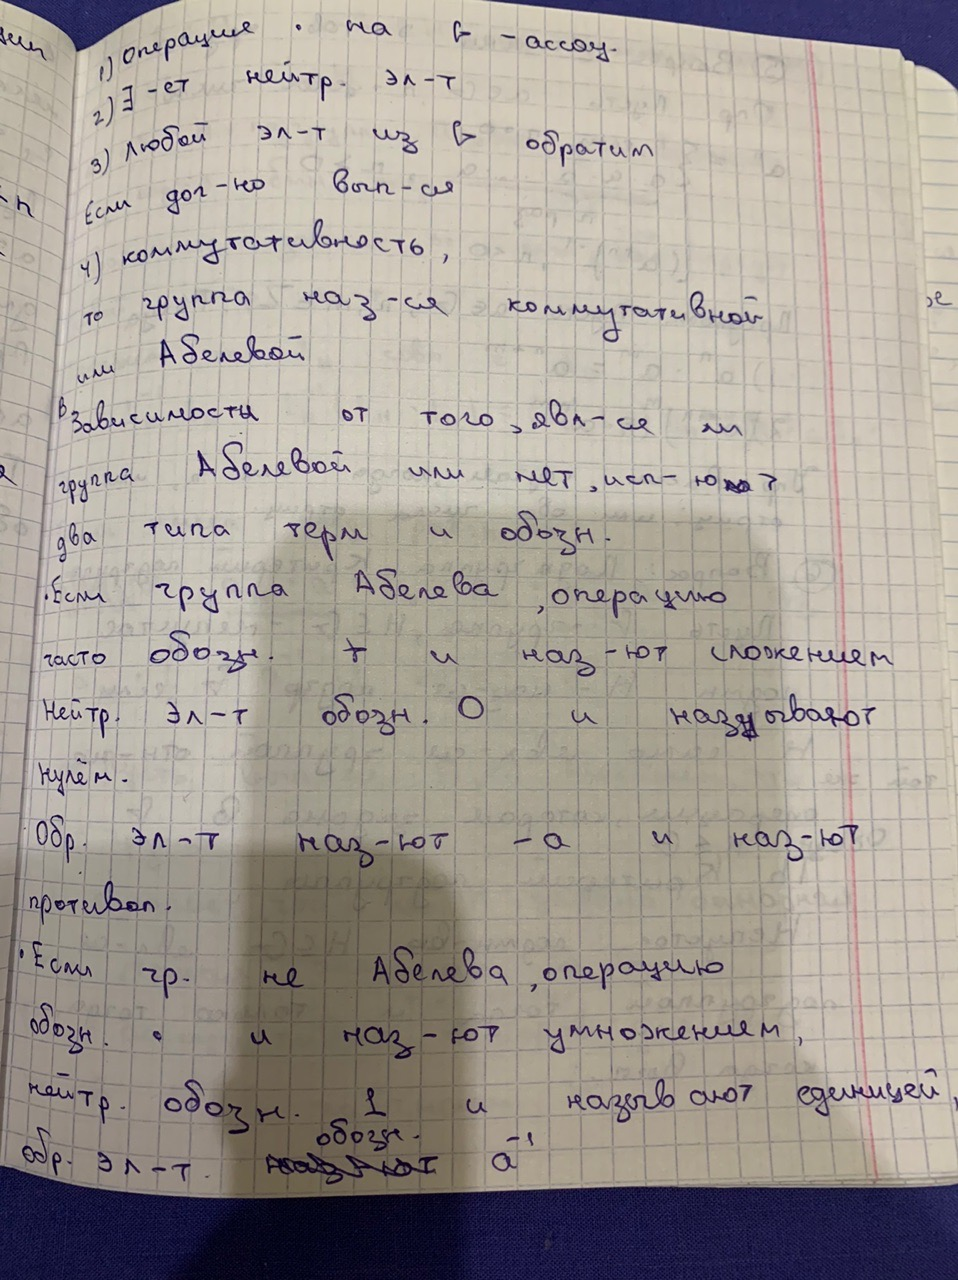 1) операция · на G - ассоц.
2) ∃-ет нейтр. эл-т
3) любой эл-т из G обратим
Если доп-но вып-ся
4) коммутативность,
то группа наз-ся коммутативной
или Абелевой
В зависимости от того, явл-ся ли
группа Абелевой или нет, исп-ют
два типа терм и обозн.
· Если группа Абелева, операцию
часто обозн. + и наз-ют сложением
Нейтр. эл-т обозн. 0 и называют
нулём.
Обр. эл-т наз-ют -a и наз-ют
противоп.
· Если гр. не Абелева, операцию
обозн. · и наз-ют умножением,
нейтр. обозн. 1 и называют единицей,
обр. эл-т. обозн. a⁻¹